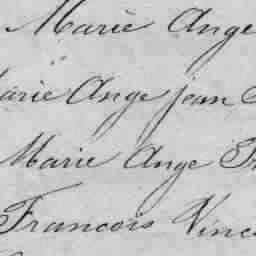 Marie Ange
Marie Ange jean
Marie Ange
Francois Vinc